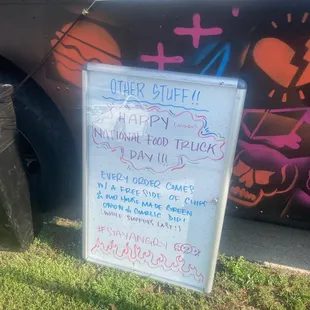 OTHER STUFF!!
HAPPY
NATIONAL FOOD TRUCK
DAY!!!
EVERY ORDER COMES
W/ A FREE SIDE OF CHIPS
& OUR HOUSE MADE GREEN
ONION & GARLIC DIP!
(WHILE SUPPLIES LAST!!)
#STAYANGRY